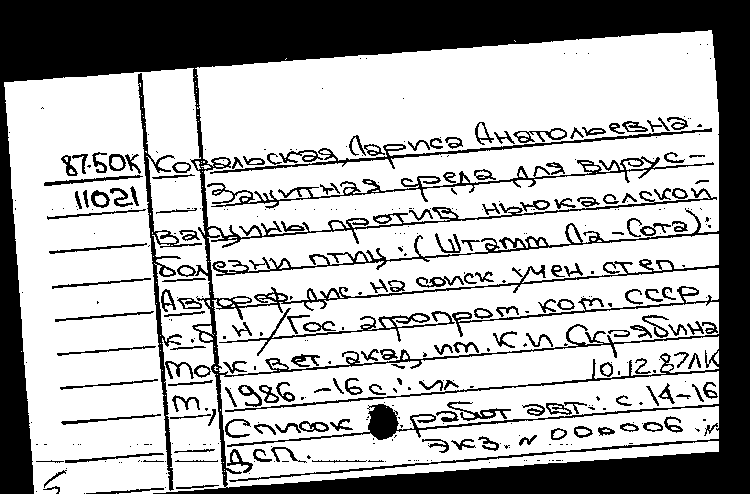 87-50К Ковальская, Лариса Анатольевна.
11021 Защитная среда для вирус-
вакцины против ньюкаслской
болезни птиц: (Штамм Ла-Сота):
Автореф. дис. на соиск. учен. степ.
к.б.н. / Гос. агропром. ком. СССР,
Моск. вет. акад. им. К.И. Скрябина
10.12.87ЛК
М., 1986. - 16 с.: ил.
Список работ авт.: с. 14-16
ДСП. экз. № 000006.